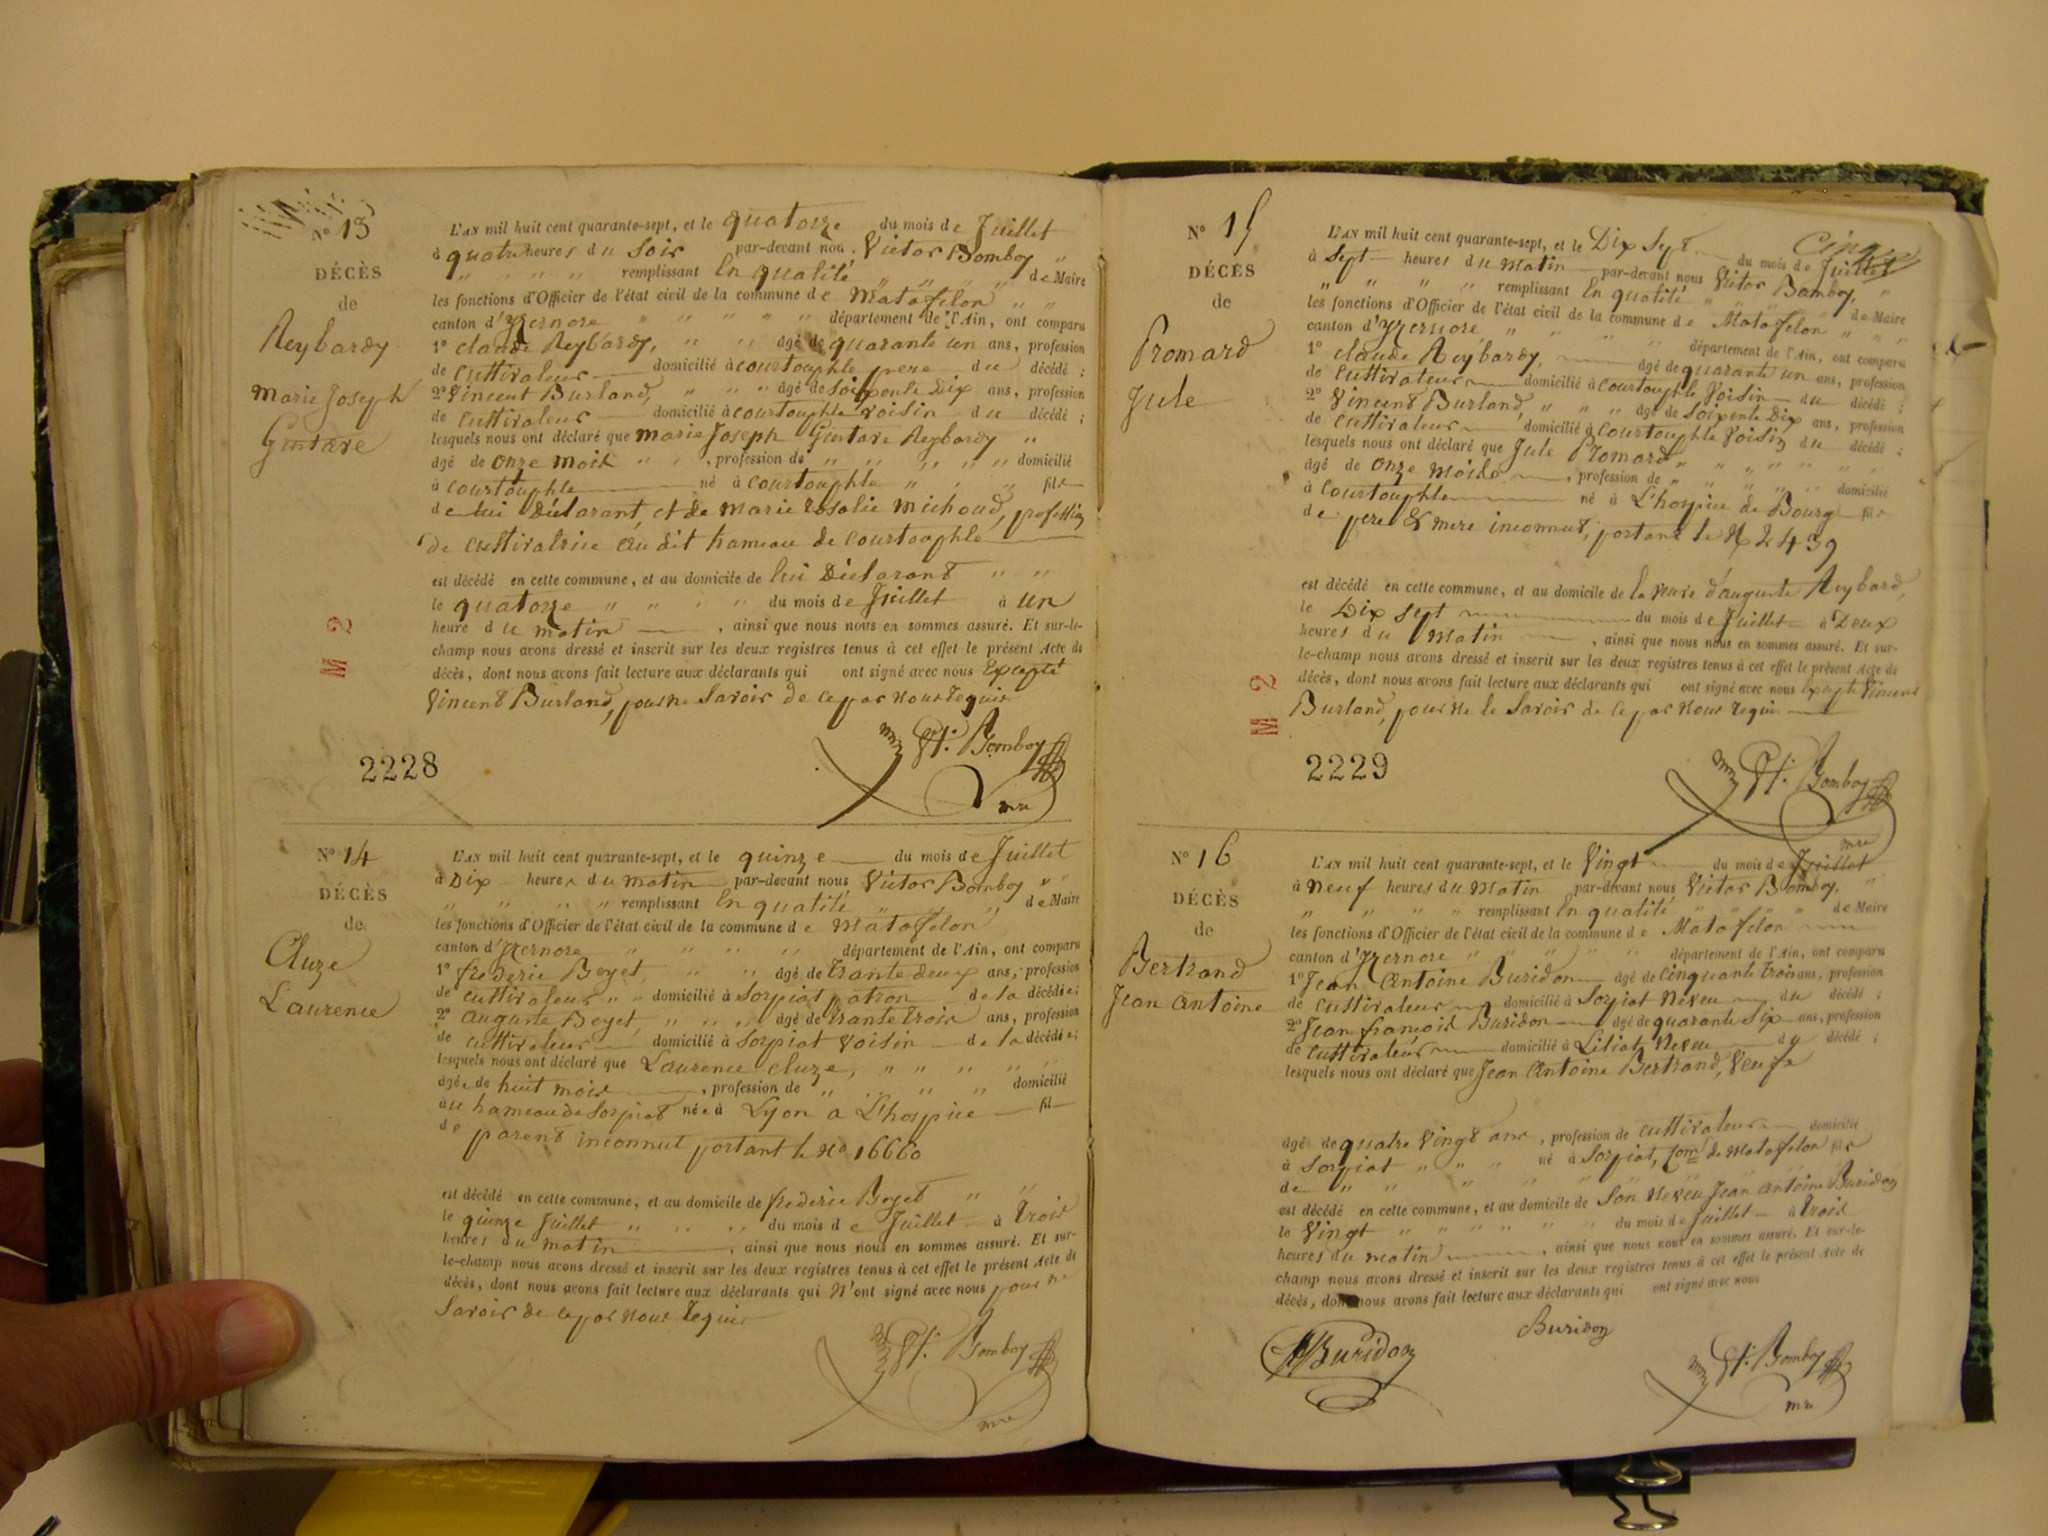 N° 13
DÉCÈS
de
Reybardy
Marie Joseph
Gustave
L'AN mil huit cent quarante-sept, et le quatorze du mois de Juillet
à quatre heures du Soir par-devant nou Victor Bomboy "
" " " " remplissant En qualité " " " de Maire
les fonctions d'Officier de l'état civil de la commune de Matafelon " "
canton d'Yzernore " " " " " département de l'Ain, ont comparu
1° claude Reybardy, " " âgé de quarante un ans, profession
de cultivateur domicilié à courtouphle pere du décédé ;
2° Vincent Burland, " " " âgé de soixente Dix ans, profession
de cultivateur domicilié à courtouphle voisin du décédé ;
lesquels nous ont déclaré que marie Joseph Gustave Reybardy "
âgé de onze mois " " , profession de " " " " " domicilié
à courtouphle né à courtouphle " " " fils
de lui Déclarant, et de marie rosalie michoud, profession
de cultivatrice au dit hameau de courtouphle
est décédé en cette commune, et au domicile de lui Déclarant " "
le quatorze " " " " du mois de Juillet à un
heure du matin , ainsi que nous nous en sommes assuré. Et sur-le-
champ nous avons dressé et inscrit sur les deux registres tenus à cet effet le présent Acte de
décès, dont nous avons fait lecture aux déclarants qui ont signé avec nous Excepté
Vincent Burland, pour ne savoir de ce par nous requis
M 2
2228
Bomboy
mre
N° 14
DÉCÈS
de
Cluze
Laurence
L'AN mil huit cent quarante-sept, et le quinze du mois de Juillet
à Dix heures du matin par-devant nous Victor Bomboy "
" " " " remplissant En qualité " " " de Maire
les fonctions d'Officier de l'état civil de la commune de Matafelon
canton d'Yzernore " " " " " département de l'Ain, ont comparu
1° frederic Beyet, " " " âgé de trante deux ans, profession
de cultivateur " " domicilié à Sorpiat patron de la décédée ;
2° auguste Beyet, " " " âgé de trante trois ans, profession
de cultivateur domicilié à Sorpiat voisin de la décédée ;
lesquels nous ont déclaré que Laurence cluze, " " " " "
âgée de huit mois , profession de " " " " domicilié
au hameau de Sorpiat née à Lyon a L'hospice fil
de parent inconnut portant le No 16660
est décédé en cette commune, et au domicile de frederic Beyet " "
le quinze Juillet " " " du mois de Juillet à trois
heures du matin , ainsi que nous nous en sommes assuré. Et sur-
le-champ nous avons dressé et inscrit sur les deux registres tenus à cet effet le présent Acte de
décès, dont nous avons fait lecture aux déclarants qui N'ont signé avec nous pour ne
savoir de ce par nous requis
Bomboy
mre
Cinq
N° 15
DÉCÈS
de
Promard
Jule
L'AN mil huit cent quarante-sept, et le Dix Sept du mois de Juillet
à Sept heures du matin par-devant nous Victor Bomboy, "
" " " " remplissant En qualité " " " de Maire
les fonctions d'Officier de l'état civil de la commune de Matafelon "
canton d'Yzernore " " " " département de l'Ain, ont comparu
1° claude Reybardy, âgé de quarante un ans, profession
de cultivateur domicilié à courtouphle Voisin du décédé ;
2° Vincent Burland, " " " âgé de soixente Dix ans, profession
de cultivateur domicilié à courtouphle Voisin du décédé ;
lesquels nous ont déclaré que Jule Promard " " " " "
âgé de onze moids , profession de " " " " domicilié
à Courtouphle né à L'hospice de Bourg fils
de pere & mere inconnut, portant le N° 2439
est décédé en cette commune, et au domicile de la veuve d'auguste Reybard,
le Dix sept du mois de Juillet à Deux
heures du Matin , ainsi que nous nous en sommes assuré. Et sur-
le-champ nous avons dressé et inscrit sur les deux registres tenus à cet effet le présent Acte de
décès, dont nous avons fait lecture aux déclarants qui ont signé avec nous Excepté Vincent
Burland, pour ne le savoir de ce par nous requis
M 2
2229
Bomboy
mre
N° 16
DÉCÈS
de
Bertrand
Jean Antoine
L'AN mil huit cent quarante-sept, et le Vingt du mois de Juillet
à Neuf heures du Matin par-devant nous Victor Bomboy, "
" " " " remplissant En qualité " " " de Maire
les fonctions d'Officier de l'état civil de la commune de Matafelon
canton d'Yzernore " " " " " département de l'Ain, ont comparu
1° Jean Antoine Buridon âgé de Cinquante trois ans, profession
de cultivateur domicilié à Sorpiat Neveu du décédé ;
2° Jean françois Buridon âgé de quarante six ans, profession
de cultivateur domicilié à Liliat Neveu du décédé ;
lesquels nous ont déclaré que Jean Antoine Bertrand, Veufe
âgé de quatre Vingt ans , profession de cultivateur domicilié
à Sorpiat " " " né à Sorpiat, Com de Matafelon fils
de " " " " " "
est décédé en cette commune, et au domicile de Son Neveu Jean Antoine Buridon
le Vingt " " " " " " du mois de Juillet à trois
heures du matin , ainsi que nous nous en sommes assuré. Et sur-le-
champ nous avons dressé et inscrit sur les deux registres tenus à cet effet le présent Acte de
décès, dont nous avons fait lecture aux déclarants qui ont signé avec nous
Buridon
Buridon
Bomboy
mre